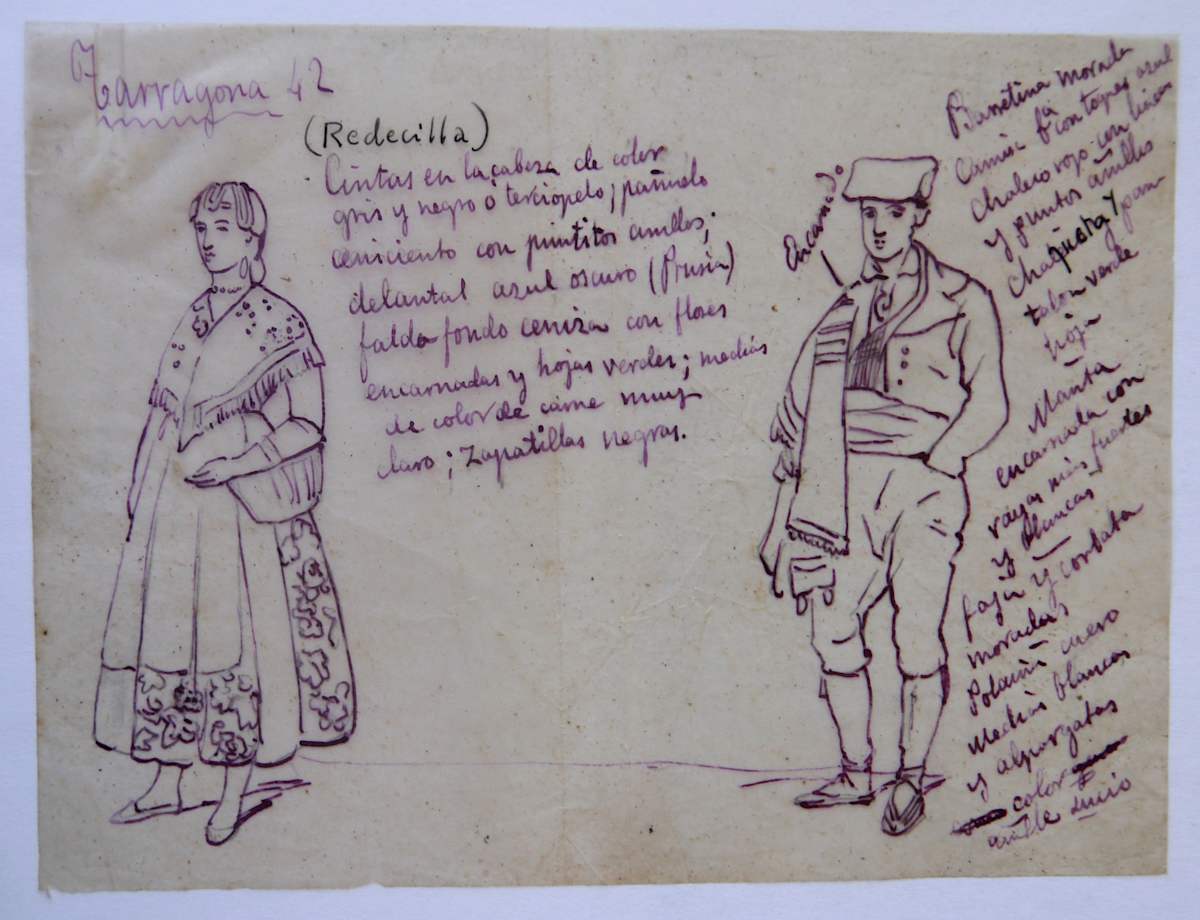 Tarragona 42
(Redecilla)
Cintas en la cabeza de color
gris y negro ó terciopelo; pañuelo
ceniciento con puntitos amllos;
delantal azul oscuro (Prusia)
falda fondo ceniza con flores
encarnadas y hojas verdes; medias
de color de carne muy
claro; Zapatillas negras.
Encarnado
Barretina morada
Camisa con toques azul
chaleco rojo con lineas
y puntos amllos
chaqueta y pan
talon verde
hoja
Manta
encarnada con
rayas más fuertes
y blancas
faja y corbata
moradas
Polaina cuero
Medias blancas
y alpargatas
color
amllo sucio